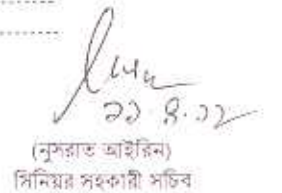 ২১.৪.২২
(নুসরাত আইরিন)
সিনিয়র সহকারী সচিব